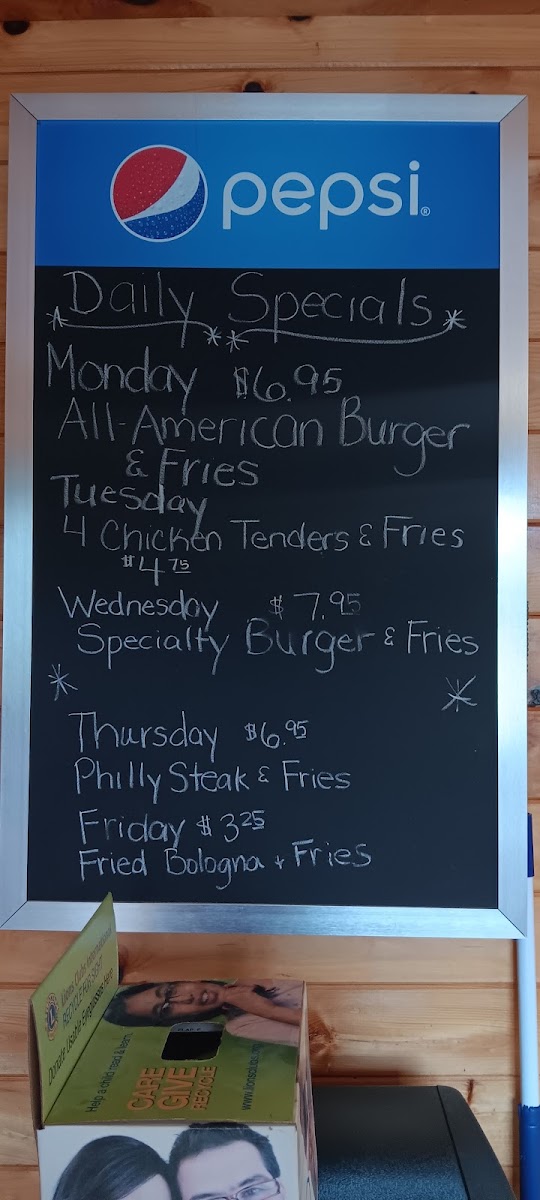 pepsi®
Daily Specials
Monday $6.95
All-American Burger
& Fries
Tuesday
4 Chicken Tenders & Fries
$4.75
Wednesday $7.95
Specialty Burger & Fries
Thursday $6.95
Philly Steak & Fries
Friday $3.25
Fried Bologna + Fries
Lions Clubs International
RECYCLE FOR SIGHT
Donate Usable Eyeglasses Here
Help a child read & learn
CARE
GIVE
RECYCLE